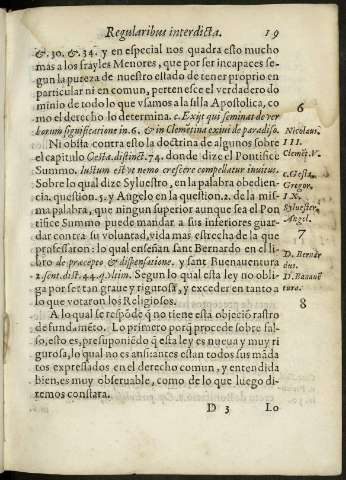 Regularibus interdicta. 19
&. 30. &. 34. y en especial nos quadra esto mucho
mas a los frayles Menores, que por ser incapaces se-
gun la pureza de nuestro estado de tener proprio en
particular ni en comun, pertenesce el verdadero do
minio de todo lo que vsamos a la silla Apostolica, co
mo el derecho lo determina. c. Exijt qui seminat de ver
borum significatione in. 6. & in Clemẽtina exiui de paradiso.
Ni obsta contra esto la doctrina de algunos sobre
el capitulo Cesta. distinct. 74. donde dize el Pontifice
Summo. Iustum est vt nemo crescere compellatur inuitus.
Sobre lo qual dize Syluestro, en la palabra obedien-
cia, question. 5. y Angelo en la question. 2. de la mis-
ma palabra, que ningun superior aunque sea el Pon
tifice Summo puede mandar a sus inferiores guar-
dar contra su voluntad, vida mas estrecha de la que
professaron: lo qual enseñan sant Bernardo en el li
bro de præcepto & dispensatione. y sant Buenauentura
2. sent. dist. 44. q. vltim. Segun lo qual esta ley no obli-
ga por ser tan graue y rigurosa, y exceder en tanto a
lo que votaron los Religiosos.
A lo qual se respõde q̃ no tiene esta objeciõ rastro
de fundamẽto. Lo primero porq̃ procede sobre fal-
so, esto es, presuponiẽdo q̃ esta ley es nueua y muy ri
gurosa, lo qual no es ansi: antes estan todos sus mãda
tos expressados en el derecho comun, y entendida
bien, es muy obseruable, como de lo que luego di-
remos constara.
D 3 Lo
6
Nicolaus.
III.
Clemẽt. V.
c. Gesta.
Gregor.
IX.
Syluester.
Angel.
7
D. Bernar
dus.
D. Bonauẽ
tura.
8